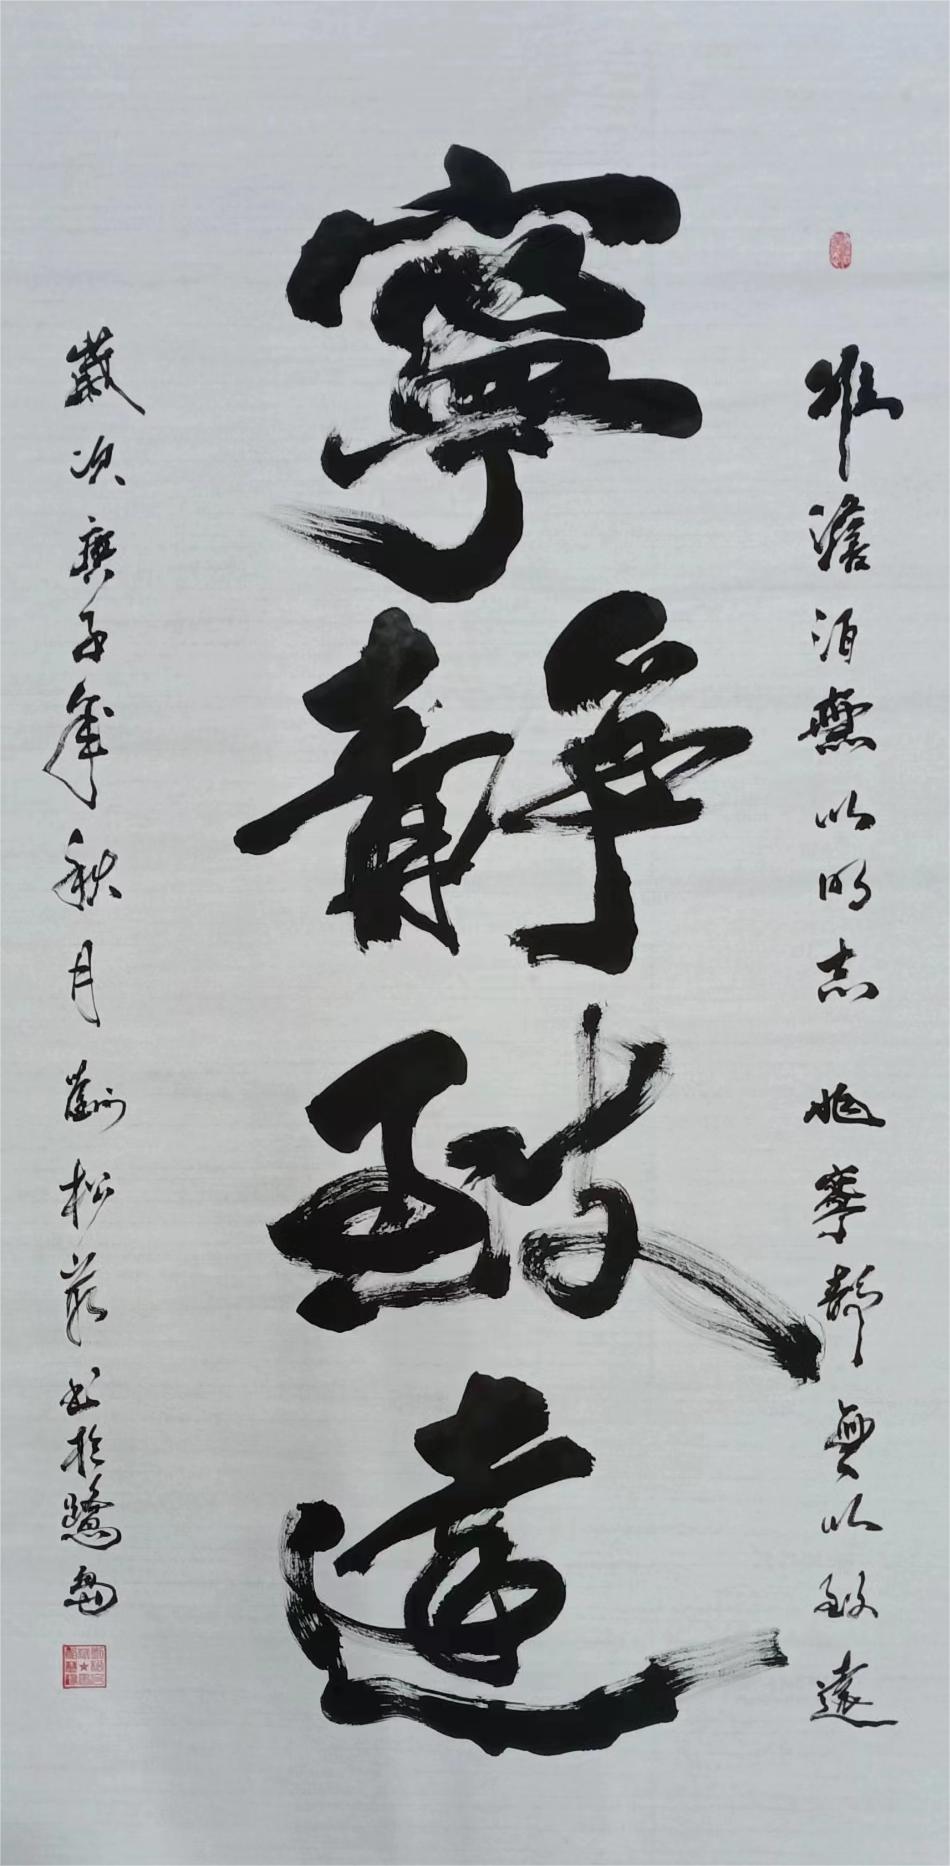 非澹泊無以明志 非寧靜無以致遠
寧靜致遠
歲次庚子年秋月劉松書於鷺島